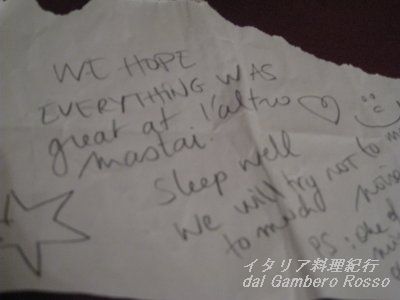 WE HOPE
EVERYTHING WAS
great at l'altro
mastai.
Sleep well
We will try not to m
to much noise
PS:
イタリア料理紀行
dal Gambero Rosso